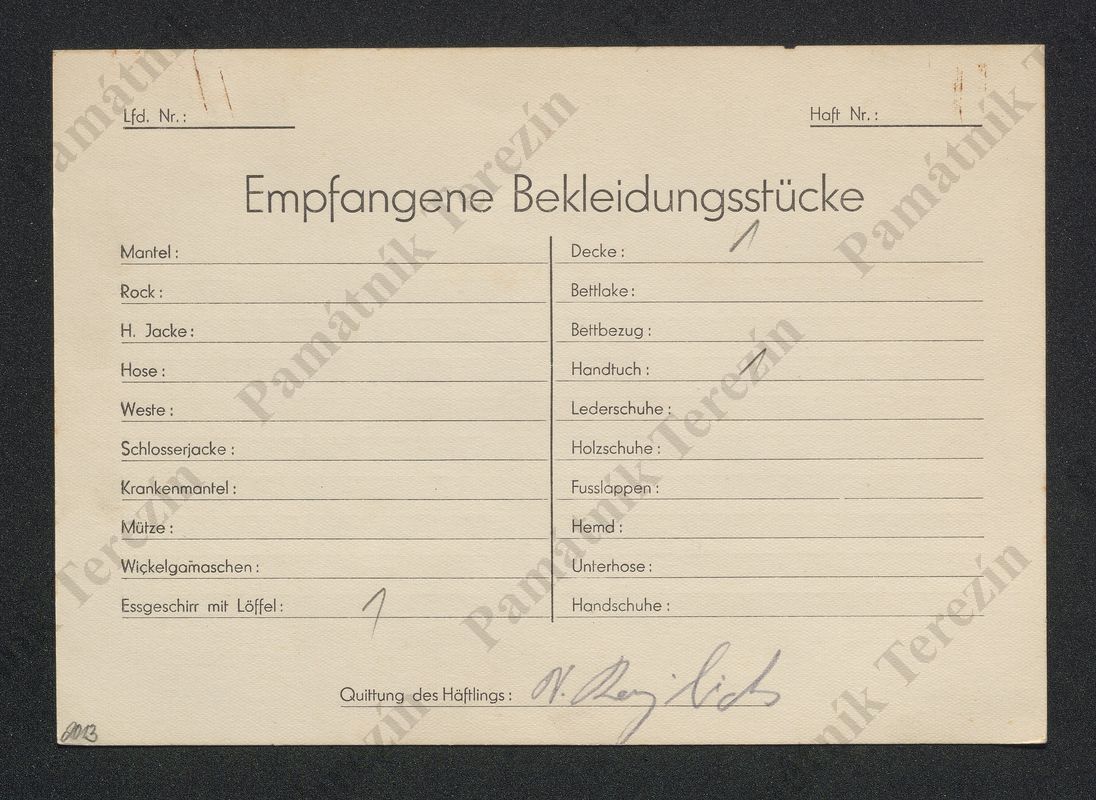 Lfd. Nr.:
Haft Nr.:
Empfangene Bekleidungsstücke
Mantel:
Rock:
H. Jacke:
Hose:
Weste:
Schlosserjacke:
Krankenmantel:
Mütze:
Wickelgamaschen:
Essgeschirr mit Löffel: 1
Decke: 1
Bettlake:
Bettbezug:
Handtuch: 1
Lederschuhe:
Holzschuhe:
Fusslappen:
Hemd:
Unterhose:
Handschuhe:
Quittung des Häftlings:
Památník Terezín
Památník Terezín
Památník Terezín
Památník Terezín